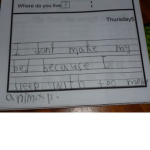 Where do you live?
Thursday
I dont make my
bed because I
sleep with too meny
animsp.